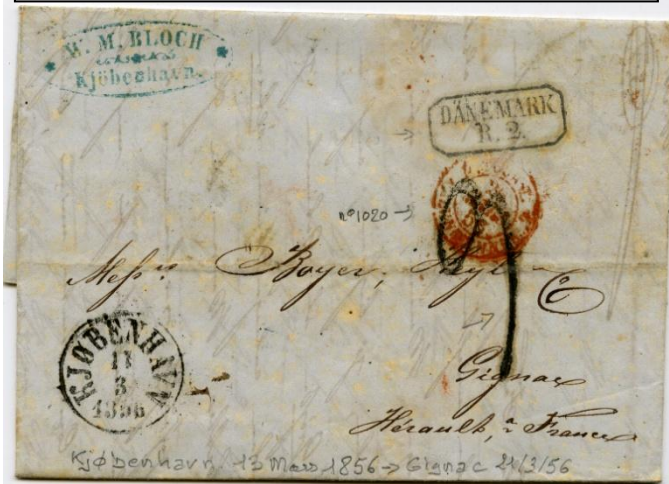 W. M. BLOCH
Kjöbenhavn.
DÄNEMARK
R. 2.
nº 1020 →
Messrs Boyer, &
Gignac
Hérault, France
KJØBENHAVN
11
3
1856
Kjøbenhavn 13 Mars 1856 → Gignac 21/3/56